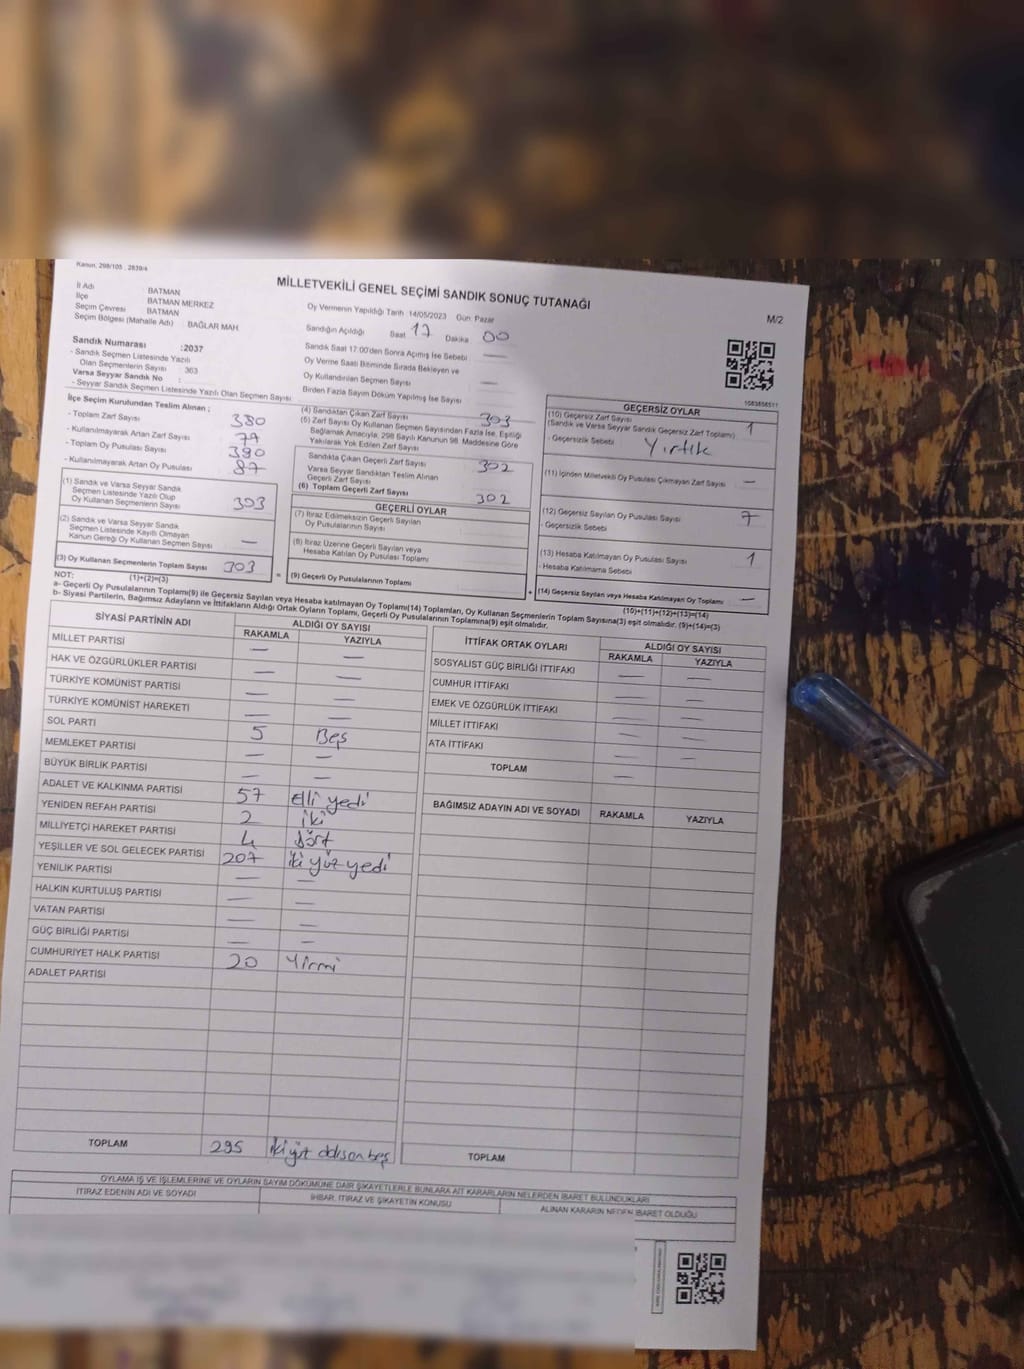 Kanun, 298/105 , 2839/4
MİLLETVEKİLİ GENEL SEÇİMİ SANDIK SONUÇ TUTANAĞI
M/2
İl Adı : BATMAN
İlçe BATMAN MERKEZ
Seçim Çevresi : BATMAN
Seçim Bölgesi (Mahalle Adı) : BAĞLAR MAH
Oy Vermenin Yapıldığı Tarih 14/05/2023 Gün: Pazar
Sandığın Açıldığı Saat 17 Dakika 00
Sandık Saat 17:00'den Sonra Açımış İse Sebebi —
Oy Verme Saati Bitiminde Sırada Bekleyen ve
Oy Kullandırılan Seçmen Sayısı —
Birden Fazla Sayım Döküm Yapılmış İse Sayısı
Sandık Numarası :2037
- Sandık Seçmen Listesinde Yazılı
Olan Seçmenlerin Sayısı : 363
Varsa Seyyar Sandık No :
- Seyyar Sandık Seçmen Listesinde Yazılı Olan Seçmen Sayısı
İlçe Seçim Kurulundan Teslim Alınan ;
- Toplam Zarf Sayısı 380
- Kullanılmayarak Artan Zarf Sayısı 77
- Toplam Oy Pusulası Sayısı 390
- Kullanılmayarak Artan Oy Pusulası 87
(1) Sandık ve Varsa Seyyar Sandık
Seçmen Listesinde Yazılı Olup
Oy Kullanan Seçmenlerin Sayısı 303
(2) Sandık ve Varsa Seyyar Sandık
Seçmen Listesinde Kayıtlı Olmayan
Kanun Gereği Oy Kullanan Seçmen Sayısı —
(3) Oy Kullanan Seçmenlerin Toplam Sayısı 303
(1)+(2)=(3)
(4) Sandıktan Çıkan Zarf Sayısı 303
(5) Zarf Sayısı Oy Kullanan Seçmen Sayısından Fazla İse, Eşitliği
Sağlamak Amacıyla, 298 Sayılı Kanunun 98. Maddesine Göre
Yakılarak Yok Edilen Zarf Sayısı
Sandıkta Çıkan Geçerli Zarf Sayısı 302
Varsa Seyyar Sandıktan Teslim Alınan
Geçerli Zarf Sayısı
(6) Toplam Geçerli Zarf Sayısı 302
GEÇERLİ OYLAR
(7) İtiraz Edilmeksizin Geçerli Sayılan
Oy Pusulalarının Sayısı
(8) İtiraz Üzerine Geçerli Sayılan veya
Hesaba Katılan Oy Pusulası Toplamı
= (9) Geçerli Oy Pusulalarının Toplamı
1083856511
GEÇERSİZ OYLAR
(10) Geçersiz Zarf Sayısı 1
(Sandık ve Varsa Seyyar Sandık Geçersiz Zarf Toplamı)
- Geçersizlik Sebebi Yırtık
(11) İçinden Milletvekili Oy Pusulası Çıkmayan Zarf Sayısı —
(12) Geçersiz Sayılan Oy Pusulası Sayısı 7
- Geçersizlik Sebebi
(13) Hesaba Katılmayan Oy Pusulası Sayısı 1
- Hesaba Katılmama Sebebi
+ (14) Geçersiz Sayılan veya Hesaba Katılmayan Oy Toplamı —
(10)+(11)+(12)+(13)=(14)
NOT:
a- Geçerli Oy Pusulalarının Toplamı(9) ile Geçersiz Sayılan veya Hesaba katılmayan Oy Toplamı(14) Toplamları, Oy Kullanan Seçmenlerin Toplam Sayısına(3) eşit olmalıdır. (9)+(14)=(3)
b- Siyasi Partilerin, Bağımsız Adayların ve İttifakların Aldığı Ortak Oyların Toplamı, Geçerli Oy Pusulalarının Toplamına(9) eşit olmalıdır.
SİYASİ PARTİNİN ADI ALDIĞI OY SAYISI
RAKAMLA YAZIYLA
MİLLET PARTİSİ — —
HAK VE ÖZGÜRLÜKLER PARTİSİ — —
TÜRKİYE KOMÜNİST PARTİSİ — —
TÜRKİYE KOMÜNİST HAREKETİ — —
SOL PARTİ 5 Beş
MEMLEKET PARTİSİ — —
BÜYÜK BİRLİK PARTİSİ — —
ADALET VE KALKINMA PARTİSİ 57 elli yedi
YENİDEN REFAH PARTİSİ 2 iki
MİLLİYETÇİ HAREKET PARTİSİ 4 dört
YEŞİLLER VE SOL GELECEK PARTİSİ 207 iki yüz yedi
YENİLİK PARTİSİ — —
HALKIN KURTULUŞ PARTİSİ — —
VATAN PARTİSİ — —
GÜÇ BİRLİĞİ PARTİSİ — —
CUMHURİYET HALK PARTİSİ 20 Yirmi
ADALET PARTİSİ
TOPLAM 295 iki yüz doksan beş
İTTİFAK ORTAK OYLARI ALDIĞI OY SAYISI
RAKAMLA YAZIYLA
SOSYALİST GÜÇ BİRLİĞİ İTTİFAKI — —
CUMHUR İTTİFAKI — —
EMEK VE ÖZGÜRLÜK İTTİFAKI — —
MİLLET İTTİFAKI — —
ATA İTTİFAKI — —
TOPLAM —
BAĞIMSIZ ADAYIN ADI VE SOYADI RAKAMLA YAZIYLA
TOPLAM
OYLAMA İŞ VE İŞLEMLERİNE VE OYLARIN SAYIM DÖKÜMÜNE DAİR ŞİKAYETLERLE BUNLARA AİT KARARLARIN NELERDEN İBARET BULUNDUKLARI
İTİRAZ EDENİN ADI VE SOYADI
İHBAR, İTİRAZ VE ŞİKAYETİN KONUSU
ALINAN KARARIN NEDEN İBARET OLDUĞU